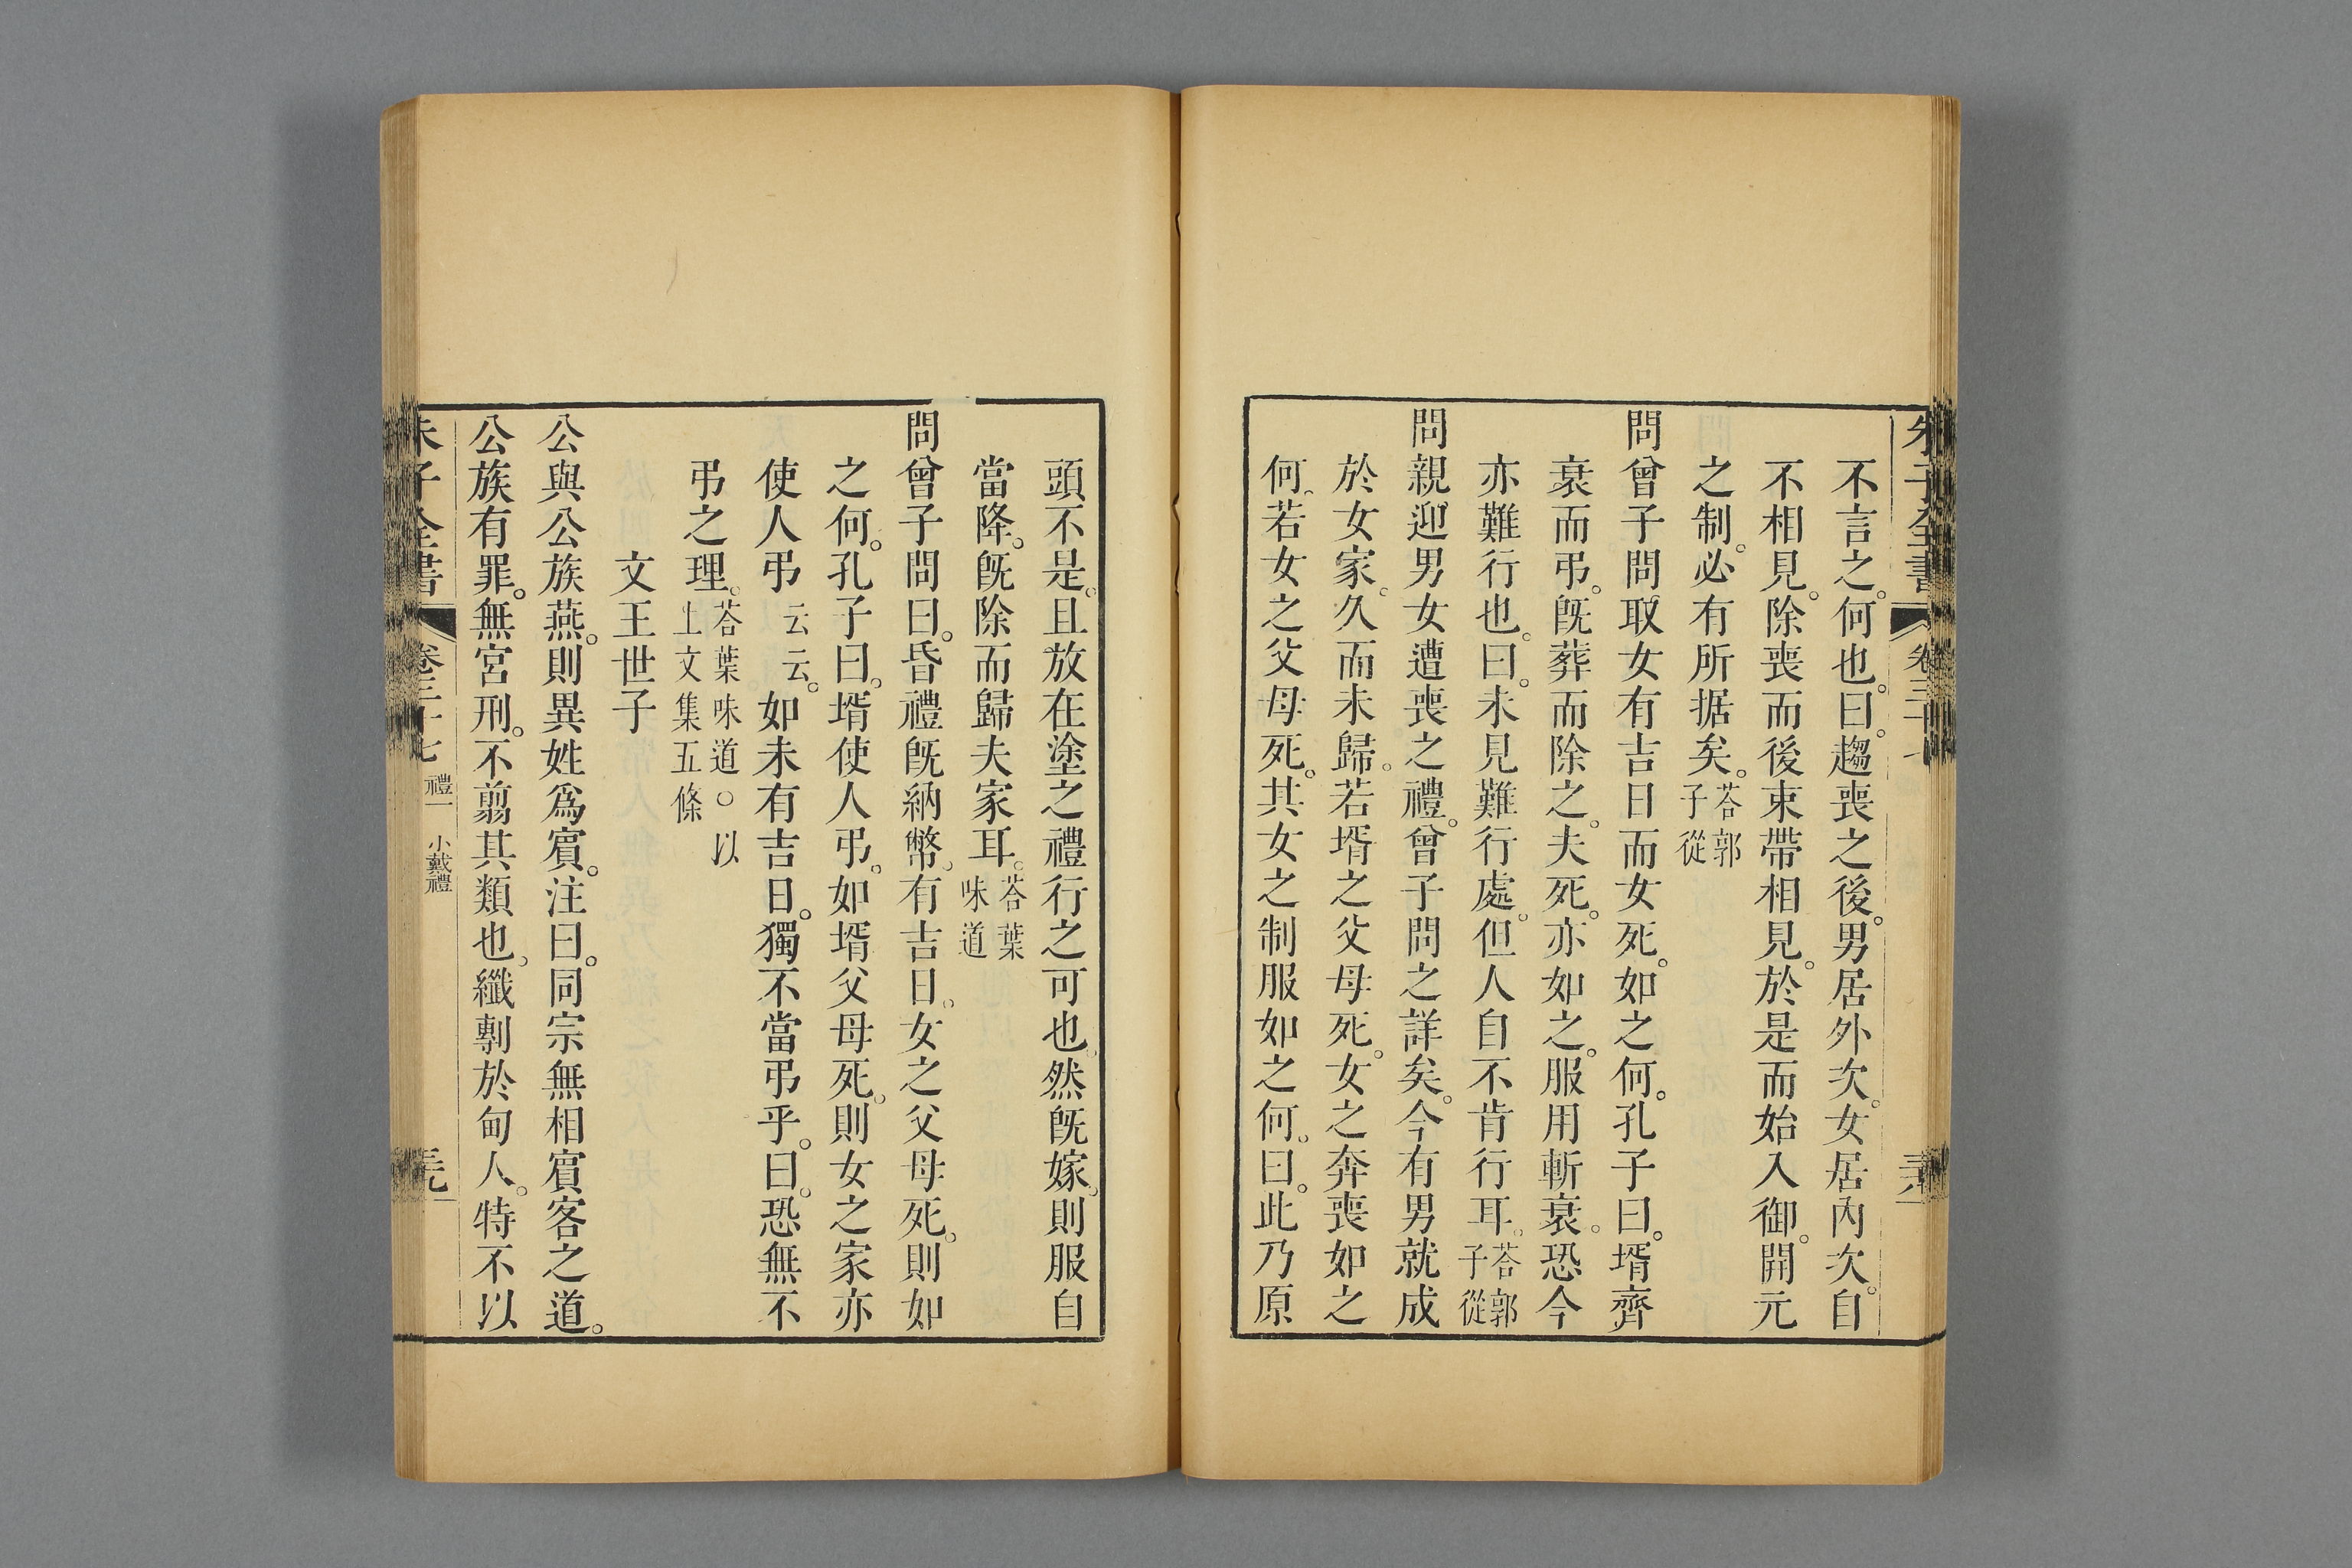 朱子全書 卷三十七
不言之。何也。曰。趨喪之後。男居外次。女居內次。自
不相見。除喪而後束帶相見。於是而始入御。開元
之制。必有所据矣。荅郭子從
問曾子問取女有吉日而女死。如之何。孔子曰。壻齊
衰而弔。旣葬而除之。夫死。亦如之。服用斬衰。恐今
亦難行也。曰。未見難行處。但人自不肯行耳。荅郭子從
問親迎男女遭喪之禮。曾子問之詳矣。今有男就成
於女家。久而未歸。若壻之父母死。女之奔喪如之
何。若女之父母死。其女之制服如之何。曰。此乃原
頭不是。且放在塗之禮行之可也。然旣嫁。則服自
當降。旣除而歸夫家耳。荅葉味道
問曾子問曰。昏禮旣納幣。有吉日。女之父母死。則如
之何。孔子曰。壻使人弔。如壻父母死。則女之家亦
使人弔云云。如未有吉日。獨不當弔乎。曰。恐無不
弔之理。荅葉味道○以上文集五條
文王世子
公與公族燕。則異姓爲賔。注曰。同宗無相賔客之道。
公族有罪。無宮刑。不翦其類也。纖剸於甸人。特不以
朱子全書 卷三十七 禮一 小戴禮